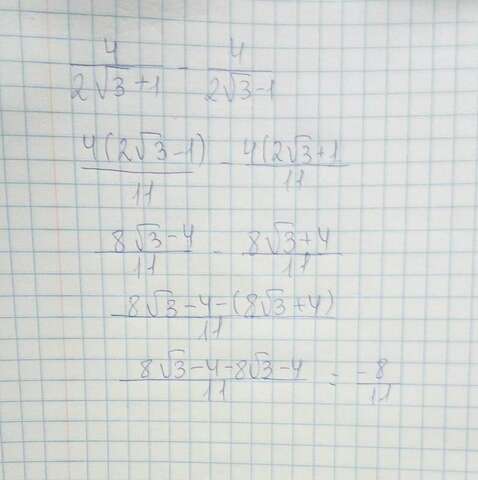 4/(2√3+1) - 4/(2√3-1)
4(2√3-1)/11 - 4(2√3+1/11
8√3-4/11 - 8√3+4/11
8√3-4-(8√3+4)/11
8√3-4-8√3-4/11 = -8/11